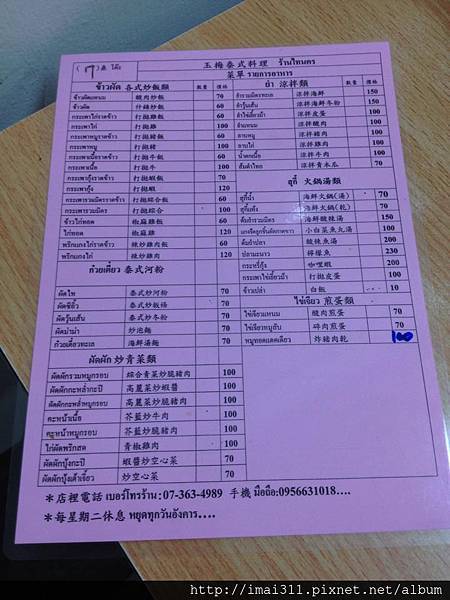 (17) 桌 โต๊ะ
玉梅泰式料理 ร้านไทนคร
菜單 รายการอาหาร
ข้าวผัด 各式炒飯類 數量 價格
ข้าวผัดแหนม 酸肉炒飯 70
ข้าวผัด 什錦炒飯 60
กระเพาไก่ราดข้าว 打拋雞飯 60
กระเพาไก่ 打拋雞 100
กระเพาหมูราดข้าว 打拋豬飯 60
กระเพาหมู 打拋豬 100
กระเพาเนื้อราดข้าว 打拋牛飯 60
กระเพาเนื้อ 打拋牛 100
กระเพากุ้งราดข้าว 打拋蝦飯 70
กระเพากุ้ง 打拋蝦 120
กระเพารวมมิตรราดข้าว 打拋綜合飯 60
กระเพารวมมิตร 打拋綜合 100
ข้าวไก่ทอด 椒麻雞飯 60
ไก่ทอด 椒麻雞 120
พริกแกงไก่ราดข้าว 辣炒雞肉飯 60
พริกแกงไก่ 辣炒雞肉 100
ก๋วยเตี๋ยว 泰式河粉
ผัดไท 泰式炒河粉 70
ผัดซีอิ๊ว 泰式炒粄條 70
ผัดวุ้นเส้น 泰式炒冬粉 70
ผัดม่าม่า 炒泡麵 70
ก๋วยเตี๋ยวทะเล 海鮮湯麵 70
ผัดผัก 炒青菜類
ผัดผักรวมหมูกรอบ 綜合青菜炒脆豬肉 100
ผัดผักกะหล่ำกะปิ 高麗菜炒蝦醬 100
ผัดผักกะหล่ำหมูกรอบ 高麗菜炒脆豬肉 100
คะหน้าเนื้อ 芥藍炒牛肉 100
คะหน้าหมูกรอบ 芥藍炒脆豬肉 100
ไก่ผัดพริกสด 青椒雞肉 100
ผัดผักบุ้งกะปิ 蝦醬炒空心菜 70
ผัดผักบุ้งเต้าเจี้ยว 炒空心菜 70
ยำ 涼拌類 數量 價格
ยำรวมมิตรทะเล 涼拌海鮮 150
ยำวุ้นเส้น 涼拌海鮮冬粉 150
ยำไข่เยี่ยวม้า 涼拌皮蛋 100
ยำแหนม 涼拌酸肉 100
ลาบหมู 涼拌豬肉 100
ลาบไก่ 涼拌雞肉 100
น้ำตกเนื้อ 涼拌牛肉 100
ส้มตำไทย 涼拌青木瓜 70
สุกี้ 火鍋湯類
สุกี้น้ำ 海鮮火鍋(湯) 70
สุกี้แห้ง 海鮮火鍋(乾) 70
ต้มยำรวมมิตร 海鮮酸辣湯 150
แกงจืดลูกชิ้นผักกาดขาว 小白菜魚丸湯 100
ต้มยำปลา 酸辣魚湯 200
ปลามะนาว 檸檬魚 230
กะหรี่กุ้ง 咖哩蝦 200
กระเพาไข่เยี่ยวม้า 打拋皮蛋 100
ข้าวเปล่า 白飯 10
ไข่เจียว 煎蛋類
ไข่เจียวแหนม 酸肉煎蛋 70
ไข่เจียวหมูสับ 碎肉煎蛋 70
หมูทอดแดดเดียว 炸豬肉乾 100
*店裡電話 เบอร์โทรร้าน:07-363-4989 手機 มือถือ:0956631018....
*每星期二休息 หยุดทุกวันอังคาร....
http://imai311.pixnet.net/album